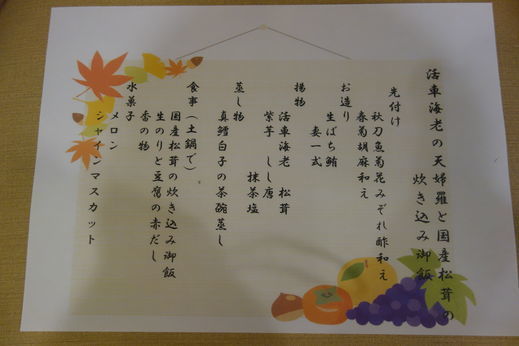 活車海老の天婦羅と国産松茸の
炊き込み御飯
先付け
秋刀魚菊花みぞれ酢和え
春菊胡麻和え
お造り
生ばち鮪
妻一式
揚物
活車海老 松茸
紫芋 しし唐
抹茶塩
蒸し物
真鱈白子の茶碗蒸し
食事(土鍋で)
国産松茸の炊き込み御飯
生のりと豆腐の赤だし
香の物
水菓子
メロン
シャインマスカット